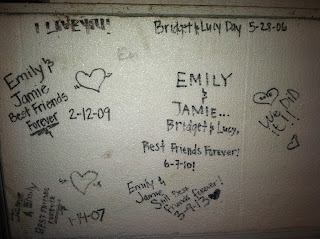 I LOVE YOU!!
Bridget & Lucy Day 5-28-06
Emily &
Jamie
Best Friends
Forever
2-12-09
EMILY
&
JAMIE...
Bridget & Lucy,
Best Friends Forever!
6-7-10!
Love
Jamie
& Emily
BEST FRIENDS
FOREVER
1-14-07
Emily &
Jamie
Still Best
friends forever!
3-9-13